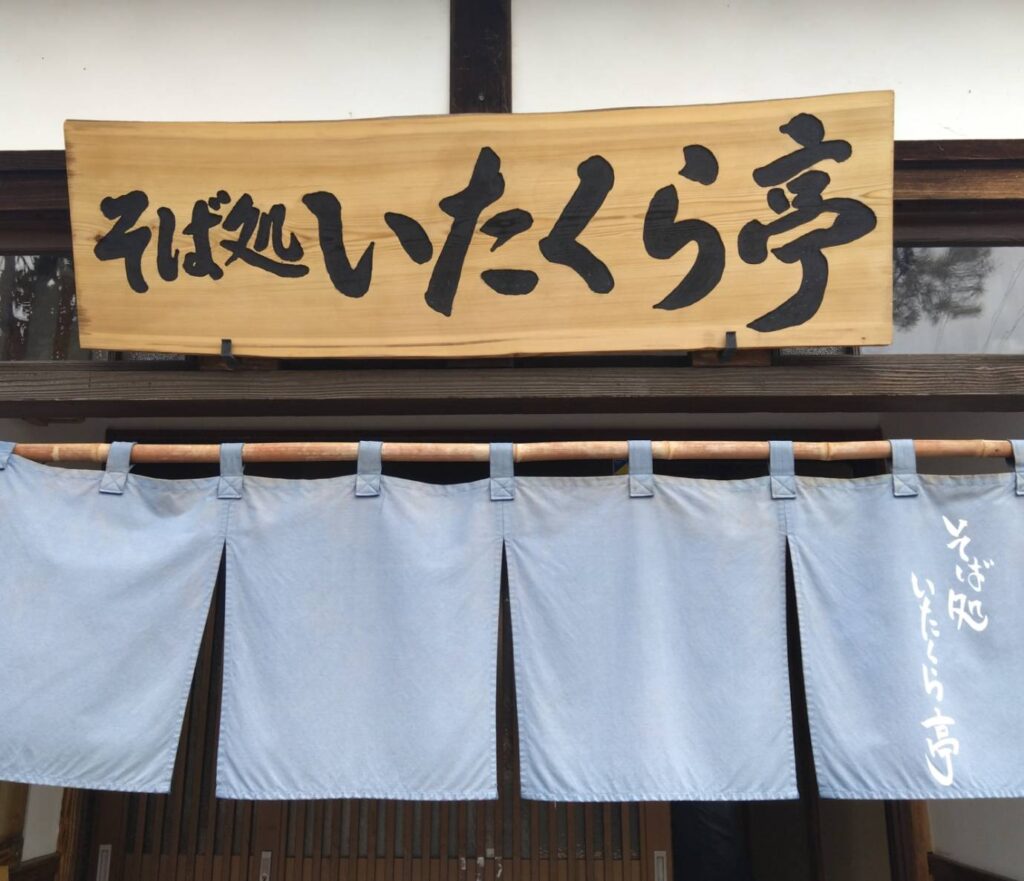 そば処いたくら亭
そば処
いたくら亭